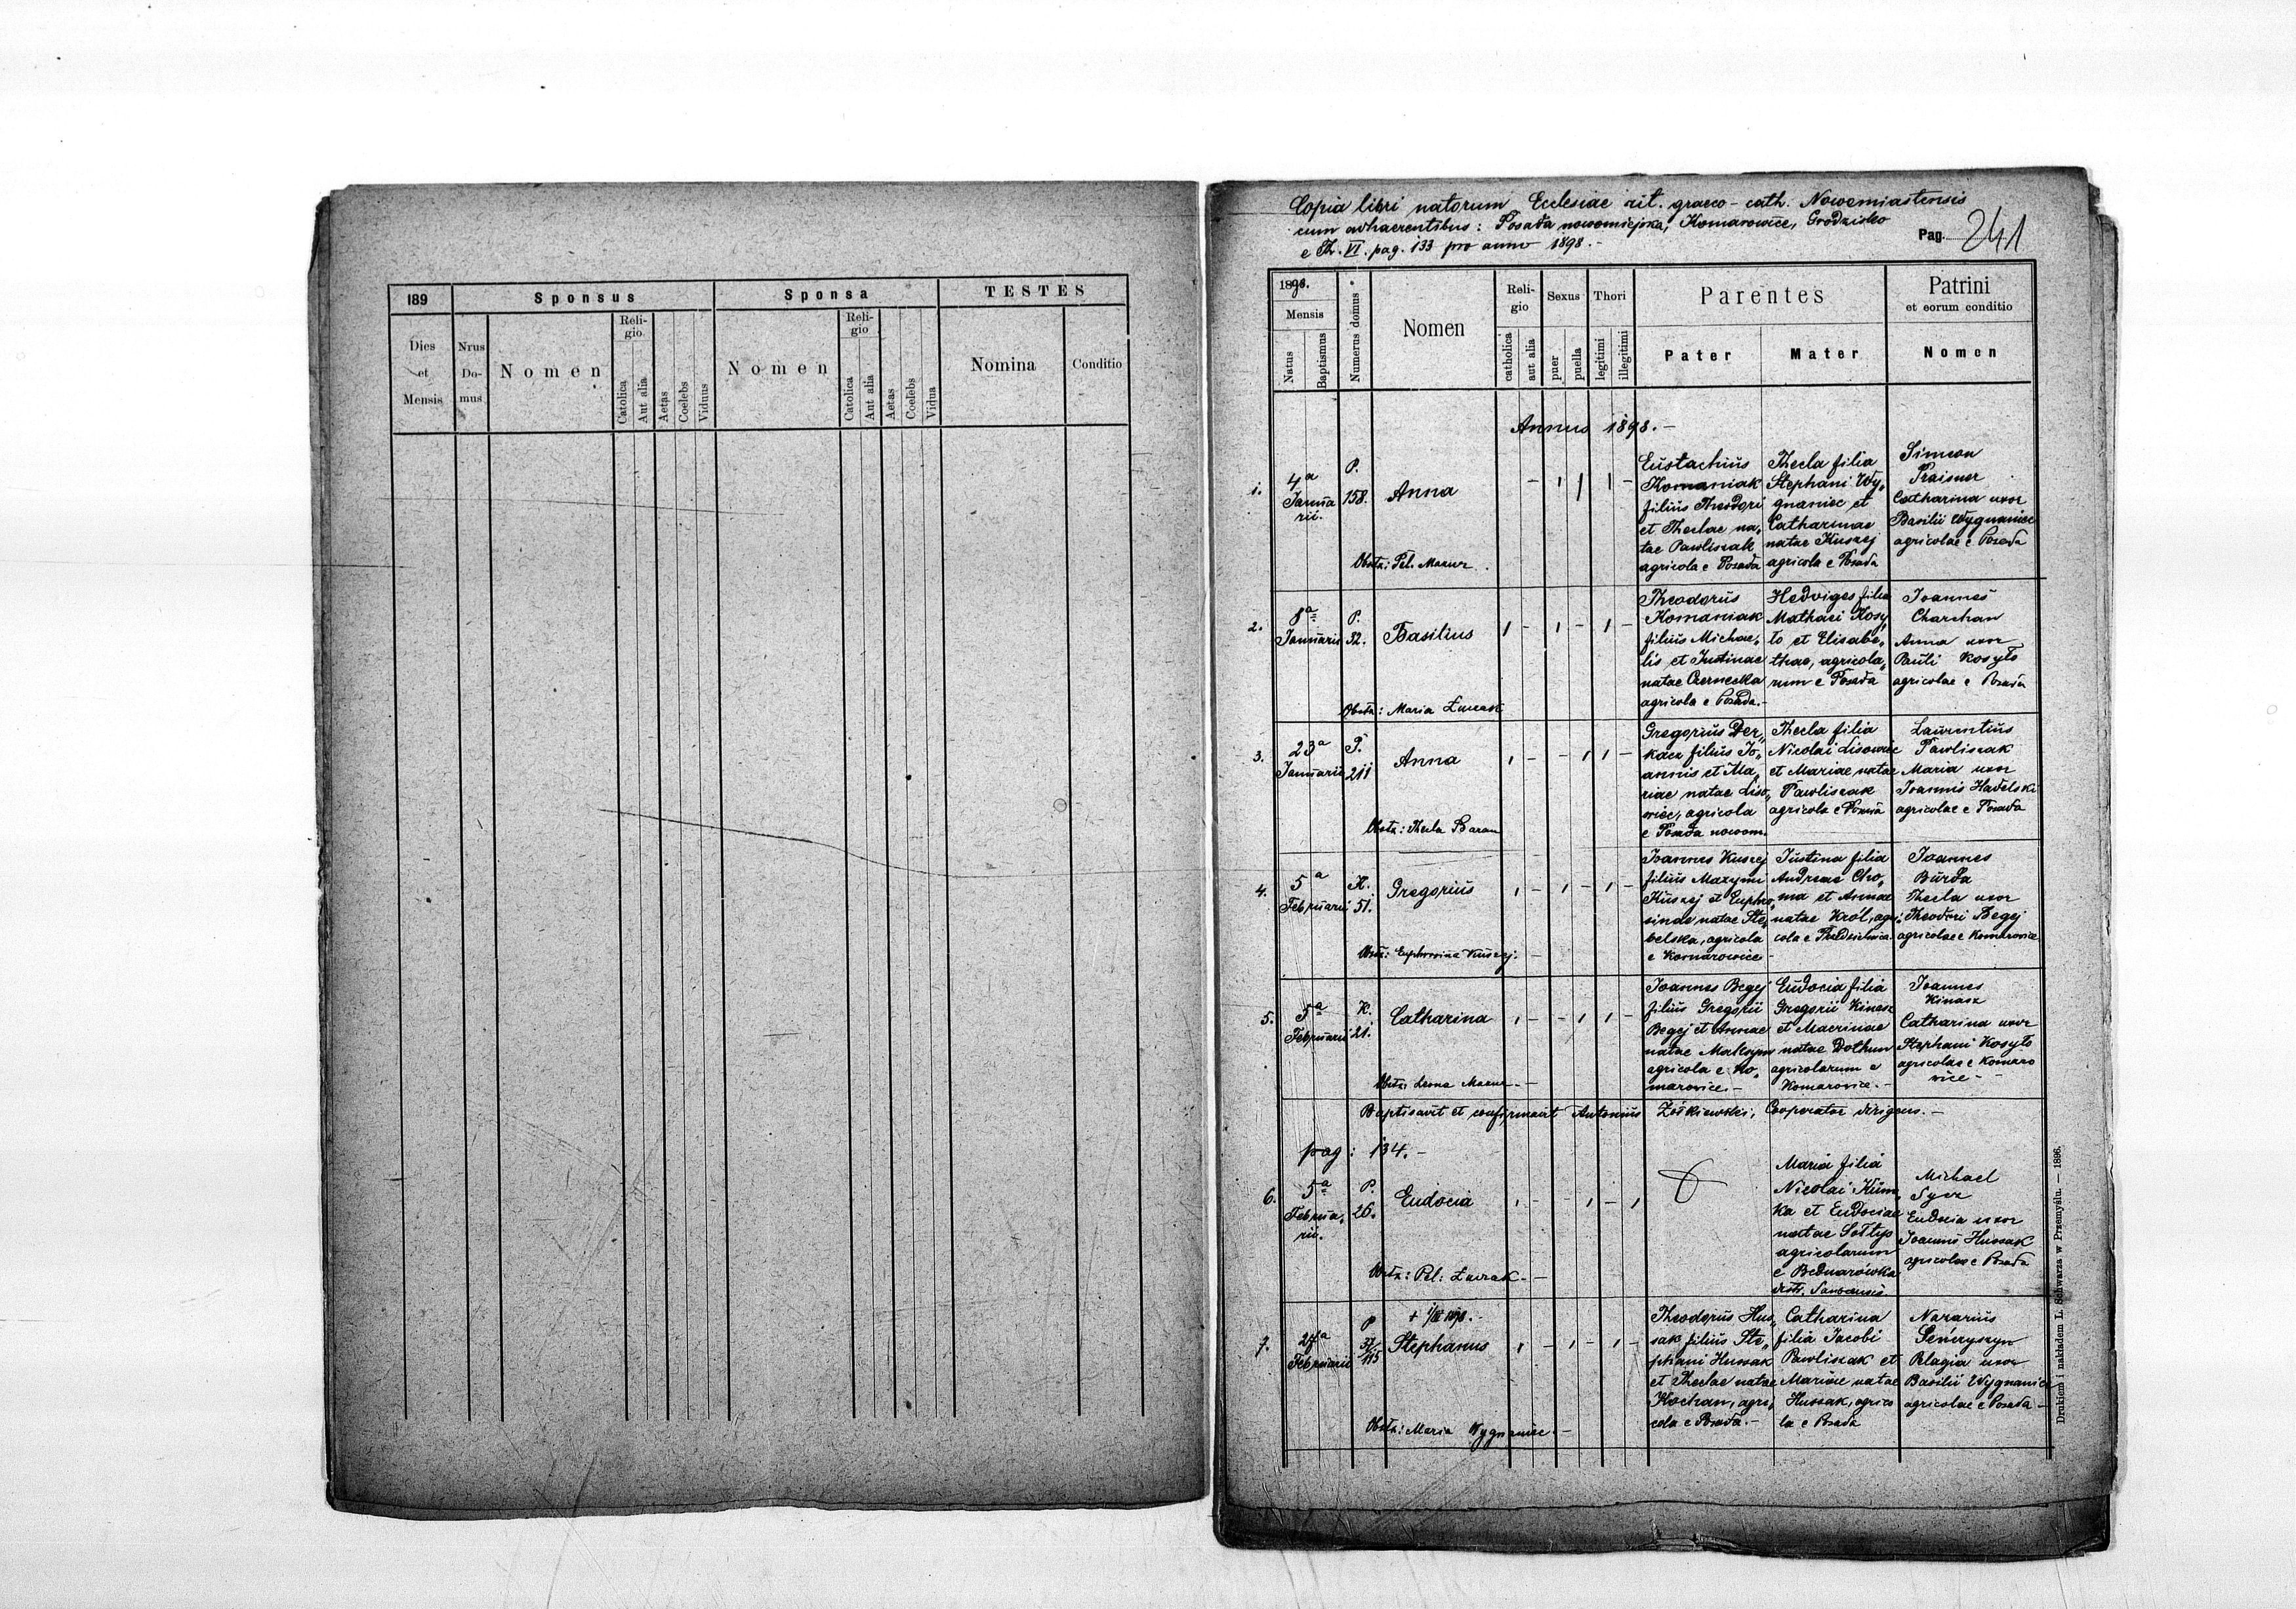 189
Sponsus
Sponsa
TESTES
Dies
et
Mensis
Nrus
Do-
mus
Nomen
Reli-
gio
Catolica
Aut alia
Aetas
Coelebs
Viduus
Nomen
Reli-
gio
Catolica
Aut alia
Aetas
Coelebs
Vidua
Nomina
Conditio
Copia libri natorum Ecclesiae rit. graeco-cath. Nowomiastensis
cum adhaerentibus: Posada nowomiejska, Komarowice, Grodzisko
e Th. VI. pag. 133 pro anno 1898.-
Pag. 241
1898.
Mensis
Natus
Baptismus
Numerus domus
Nomen
Reli-
gio
catholica
aut alia
Sexus
puer
puella
Thori
legitimi
illegitimi
Parentes
Pater
Mater
Patrini
et eorum conditio
Nomen
Annus 1898.-
1.
4a
Janua
rii.
P.
158.
Anna
Obstx: Pel. Mazur
Eustachius
Komaniak
filius Theodori
et Theclae na„
tae Pawliszak
agricola e Posada
Thecla filia
Stephani Wy„
gnaniec et
Catharinae
natae Kuszej
agricola e Posada
Simeon
Praisner
Catharina uxor
Basilii Wygnaniec
agricolae e Posada
2.
8a
Januarii
P.
32.
Basilius
Obstx: Maria Łuczak
Theodorus
Komaniak
filius Michae„
lis et Justinae
natae Czernecka
agricola e Posada.-
Hedviges filia
Mathaei Kosy„
ło et Elisabe„
thae, agricola„
rum e Posada
Joannes
Charchan
Anna uxor
Pauli Kosyło
agricolae e Posada
3.
23a
Januarii
P.
211
Anna
Obstx: Thecla Baran
Gregorius Der„
kacz filius Jo„
annis et Ma„
riae natae Liso„
wiec, agricola
e Posada nowom.
Thecla filia
Nicolai Lisowiec
et Mariae natae
Pawliszak
agricola e Posada
Laurentius
Pawliszak
Maria uxor
Joannis Hadelski
agricolae e Posada
4.
5a
Februarii
K.
51.
Gregorius
Obstx: Euphrosina Kuszej.
Joannes Kuszej
filius Maxymi
Kuszej et Euphro„
sinae natae Ste„
belska, agricola
e Komarowice
Justina filia
Andreae Cho„
ma et Annae
natae Król, agri„
cola e Przedzielnica
Joannes
Burda
Thecla uxor
Theodori Begej
agricolae e Komarowice
5.
5a
Februarii
K.
21.
Catharina
Obstx: Mazur.-
Joannes Begej
filius Gregorii
Begej et Annae
natae Maksym
agricola e Ko„
marowice.-
Eudocia filia
Gregorii Kinasz
et Macrinae
natae Dothun
agricolarum e
Komarowice.-
Joannes
Kinasz
Catharina uxor
Stephani Kosyło
agricolae e Komaro
wice-
Baptisavit et confirmavit Antonius Żółkiewski, Cooperator dirigens.-
pag: 134.-
6.
5a
Februa„
rii.
P.
26.
Eudocia
Obstx: Pel: Łuczak-
Maria filia
Nicolai Kum„
ka et Eudociae
natae Sołtys
agricolarum
e Bednarówka
distr. Sanocensis
Michael
Sycz
Eudocia uxor
Joannis Hussak
agricolae e Posada
7.
24a
Februarii
P
115
Stephanus
Obstx: Maria Wygnaniec-
Theodorus Hus„
sak filius Ste„
phani Hussak
et Theclae natae
Kochan, agri„
cola e Posada.-
Catharina
filia Jacobi
Pawliszak et
Mariae natae
Hussak, agrico
la e Posada
Nazarius
Seńczyszyn
Pelagia uxor
Basilii Wygnaniec
agricolae e Posada
Drukiem i nakładem L. Schwarza w Przemyślu. — 1896.